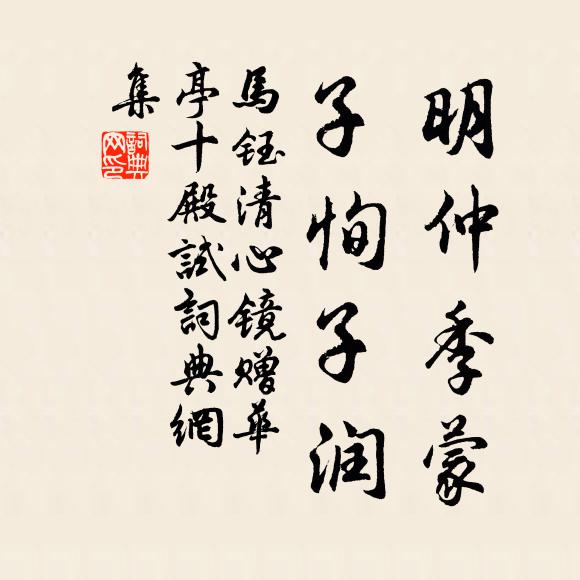 明仲季蒙
子恂子润
馬鈺清心镜赠華
亭十殿試詞典網
集
詞典网印